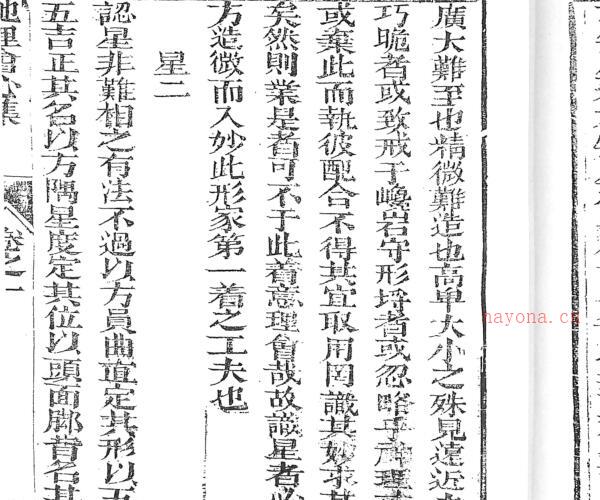 廣大難至也精微難造也高卑大小之殊見遠近
巧脆者或致戒于巉岩守形埒者或忽略乎
或棄此而執彼配合不得其宜取用罔識其妙求
矣然則業是者可不于此着意理會哉故識星者必
方造微而入妙此形家第一着之工夫也
星二
認星非難相之有法不過以方員曲直定其形以五
五吉正其名以方隅星度定其位以頭面脚背名其
地理會心集
卷之一
hayona.cn